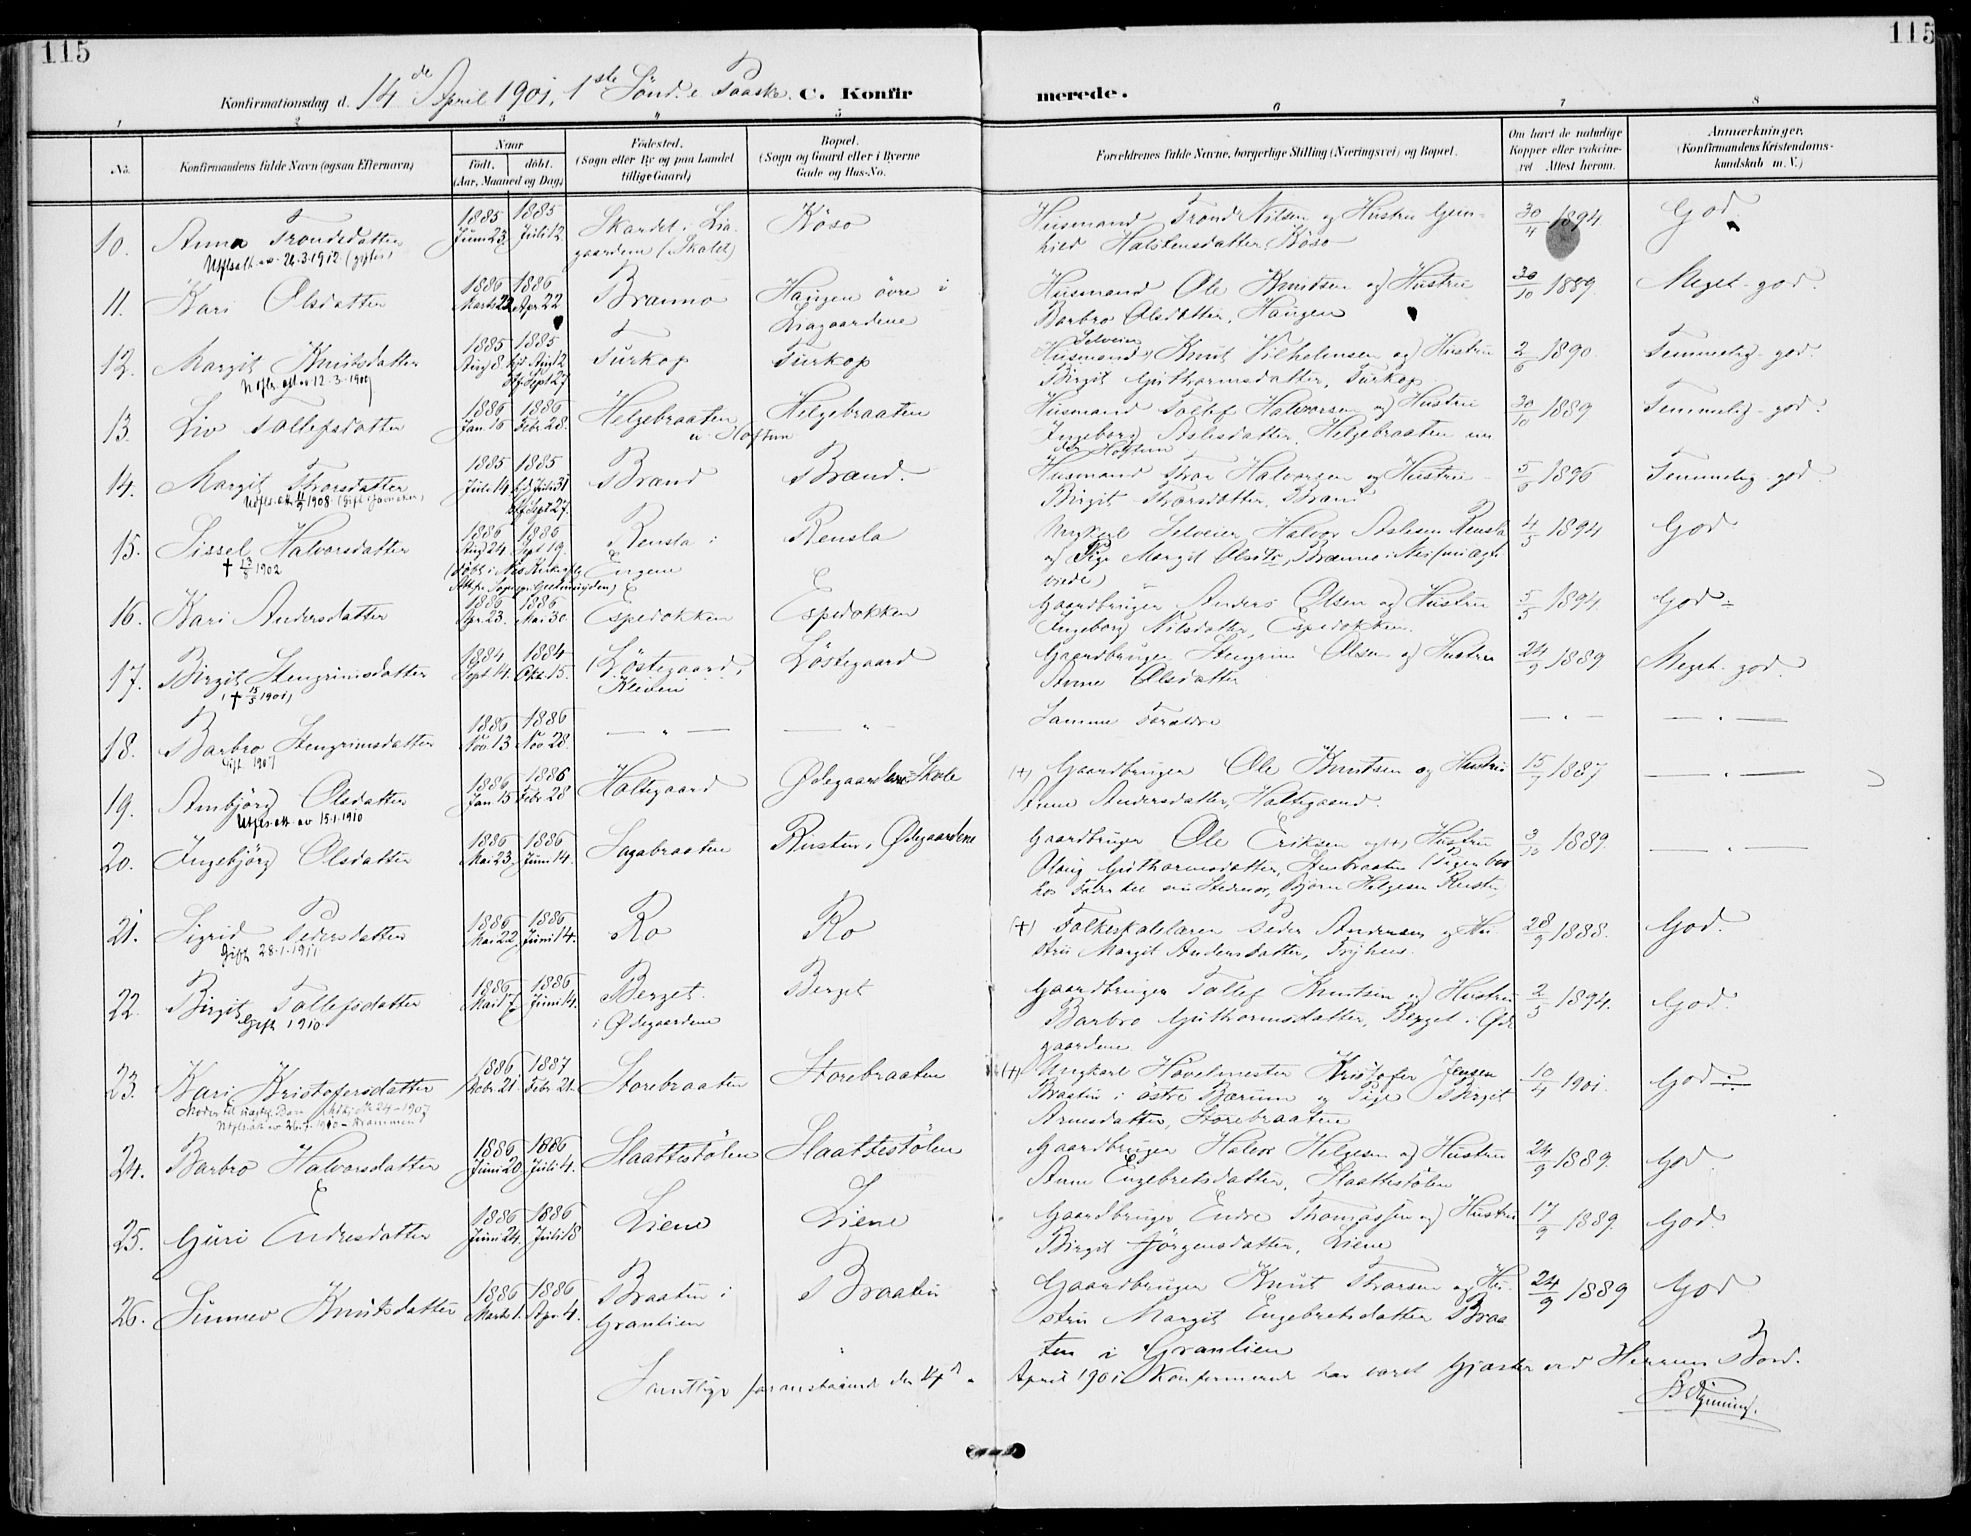 115
115
Konfirmationsdag d. 14de April 1901, 1ste Sönd. e. Paaske. C. Konfirmerede.
1 2 3 4 5 6 7 8
No. Konfirmandens fulde Navn (ogsaa Efternavn) Naar födt. döbt. (Aar, Maaned og Dag) Födested. (Sogn eller By og paa Landet tillige Gaard) Bopæl. (Sogn og Gaard eller i Byerne Gade og Hus-No. Forældrenes fulde Navne, borgerlige Stilling (Næringsvei) og Bopæl. Om havt de naturlige Kopper eller vakcineret Attest herom. Anmærkninger. (Konfirmandens Kristendomskundskab m. V.)
10. Anna Trondsdatter 1885 Juni 23. 1885 Juli 12. Skardet i Liagaardene (Skalet) Köso Husmand Trond Nilsen og Hustru Gunhild Halstensdatter, Köso 30/4 1894. God.
Utfl.att. av 24.3.1912 (giftes)
11. Kari Olsdatter 1886 Marts 22. 1886 Apr. 22. Brænno Haugen övre i Liagaardene Husmand Ole Knutsen og Hustru Barbro Olsdatter, Haugen 30/10 1889. Meget god.
12. Margit Knutsdatter 1885 Aug. 8. 1885 hjd. Aug. 12 Stf. Sept. 27. Turkop Turkop Selveier Husmand Knut Vilhelmsen og Hustru Birgit Guthormsdatter, Turkop 2/6 1890. Temmelig god.
Utfls. att av 12-3-1907
13. Liv Tollefsdatter 1886 Jan. 16 1886 Febr. 28. Helgebraaten u. Hoftun Helgebraaten Husmand Tollef Halvorsen og Hustru Ingeborg Aslesdatter, Helgebraaten under Hoftun 30/10 1889 Temmelig god.
14. Margit Thorsdatter 1885 Juli 14. 1885 hjd. Juli 31 Stf. Sept. 27. Brand Brand. Husmand Thor Halvorsen og Hustru Birgit Thorsdatter, Brand 5/6 1896 Temmelig god.
15. Sissel Halvorsdatter 1886 Aug. 24 1886 Sept. 19. Rensla i Engene Rensla Ungkarl Selveier Halvor Aslesen Rensla og Pige Margit Olsdtr, Brænne i Nes 4/5 1894 God
16. Kari Andersdatter 1886 Apr. 23. 1886 Mai 30. Espedokken Espedokken Gaardbruger Anders Olsen og Hustru Ingeborg Nilsdatter, Espedokken. 5/5 1894. God ÷
17. Birgit Stengrimsdatter 1884 Sept. 14. 1884 Okt. 15. Löstegaard, Kleven Löstegaard Gaardbruger Stengrim Olsen og Hustru Anne Olsdatter 24/9 1889 Meget god.
18. Barbro Stengrimsdatter 1886 Nov. 13 1886 Nov. 28. — " — — " Samme Forældre — " — — " —
Gift 1907
19. Ambjörg Olsdatter 1886 Jan. 15 1886 Febr. 28 Holtegaard Ødegaardene Skole (+) Gaardbruger Ole Knutsen og Hustru Anne Andersdatter, Holtegaard. 15/7 1887 — " —
Utfls.att. av 15.1.1910
20. Ingebjörg Olsdatter 1886 Mai 23. 1886 Juni 14. Sagabraaten Rusten i Ødegaardene Gaardbruger Ole Eriksen og (+) Hustru Olaug Guthormsdatter, (Pigen bor hos Bjørn Helgesen Rusten) 3/10 1889. — " —
21. Sigrid Pedersdatter 1886 Mai 22. 1886 Juni 14. Ro Ro (+) Folkeskolelærer Peder Andersen og Hustru Margit Andersdatter, 28/9 1888. God.
Gift 28-1-1911
22. Birgit Tollefsdatter 1886 Mai 7. 1886 Juni 14. Berget i Ødegaardene Berget Gaardbruger Tollef Knutsen og Hustru Barbro Guthormsdatter, Berget i Ødegaardene 2/5 1894. God.
Gift 1910
23. Kari Kristofersdatter 1886 1887 Febr. 21. Storebraaten Storebraaten (+) Ungkarl Høvelmester Kristofer Jensen Braaten i østre Bærum og Pige Birgit Arnesdatter, Storebraaten 10/4 1901. God ÷
24. Barbro Halvorsdatter 1886 Juni 20. 1886 Juli 4. Slaattestölen Slaattestölen Gaardbruger Halvor Helgesen og Hustru Anne Engebretsdatter, Slaattestölen 24/9 1889. God
25. Guri Endresdatter 1886 Juni 24. 1886 Juli 18 Liene Liene Gaardbruger Endre Thomassen og Hustru Birgit Jörgensdatter, Liene 17/9 1889. God.
26. Sunnev Knutsdatter 1886 Marts 1. 1886 Apr. 4. Braaten i Granlien Braaten Gaardbruger Knut Thorsen og Hustru Margit Engebretsdatter Braaten i Granlien 24/9 1889 God
Samtlige foranstaaende den 14de April 1901 Konfirmerede har været Gjæster ved Herrens Bord.